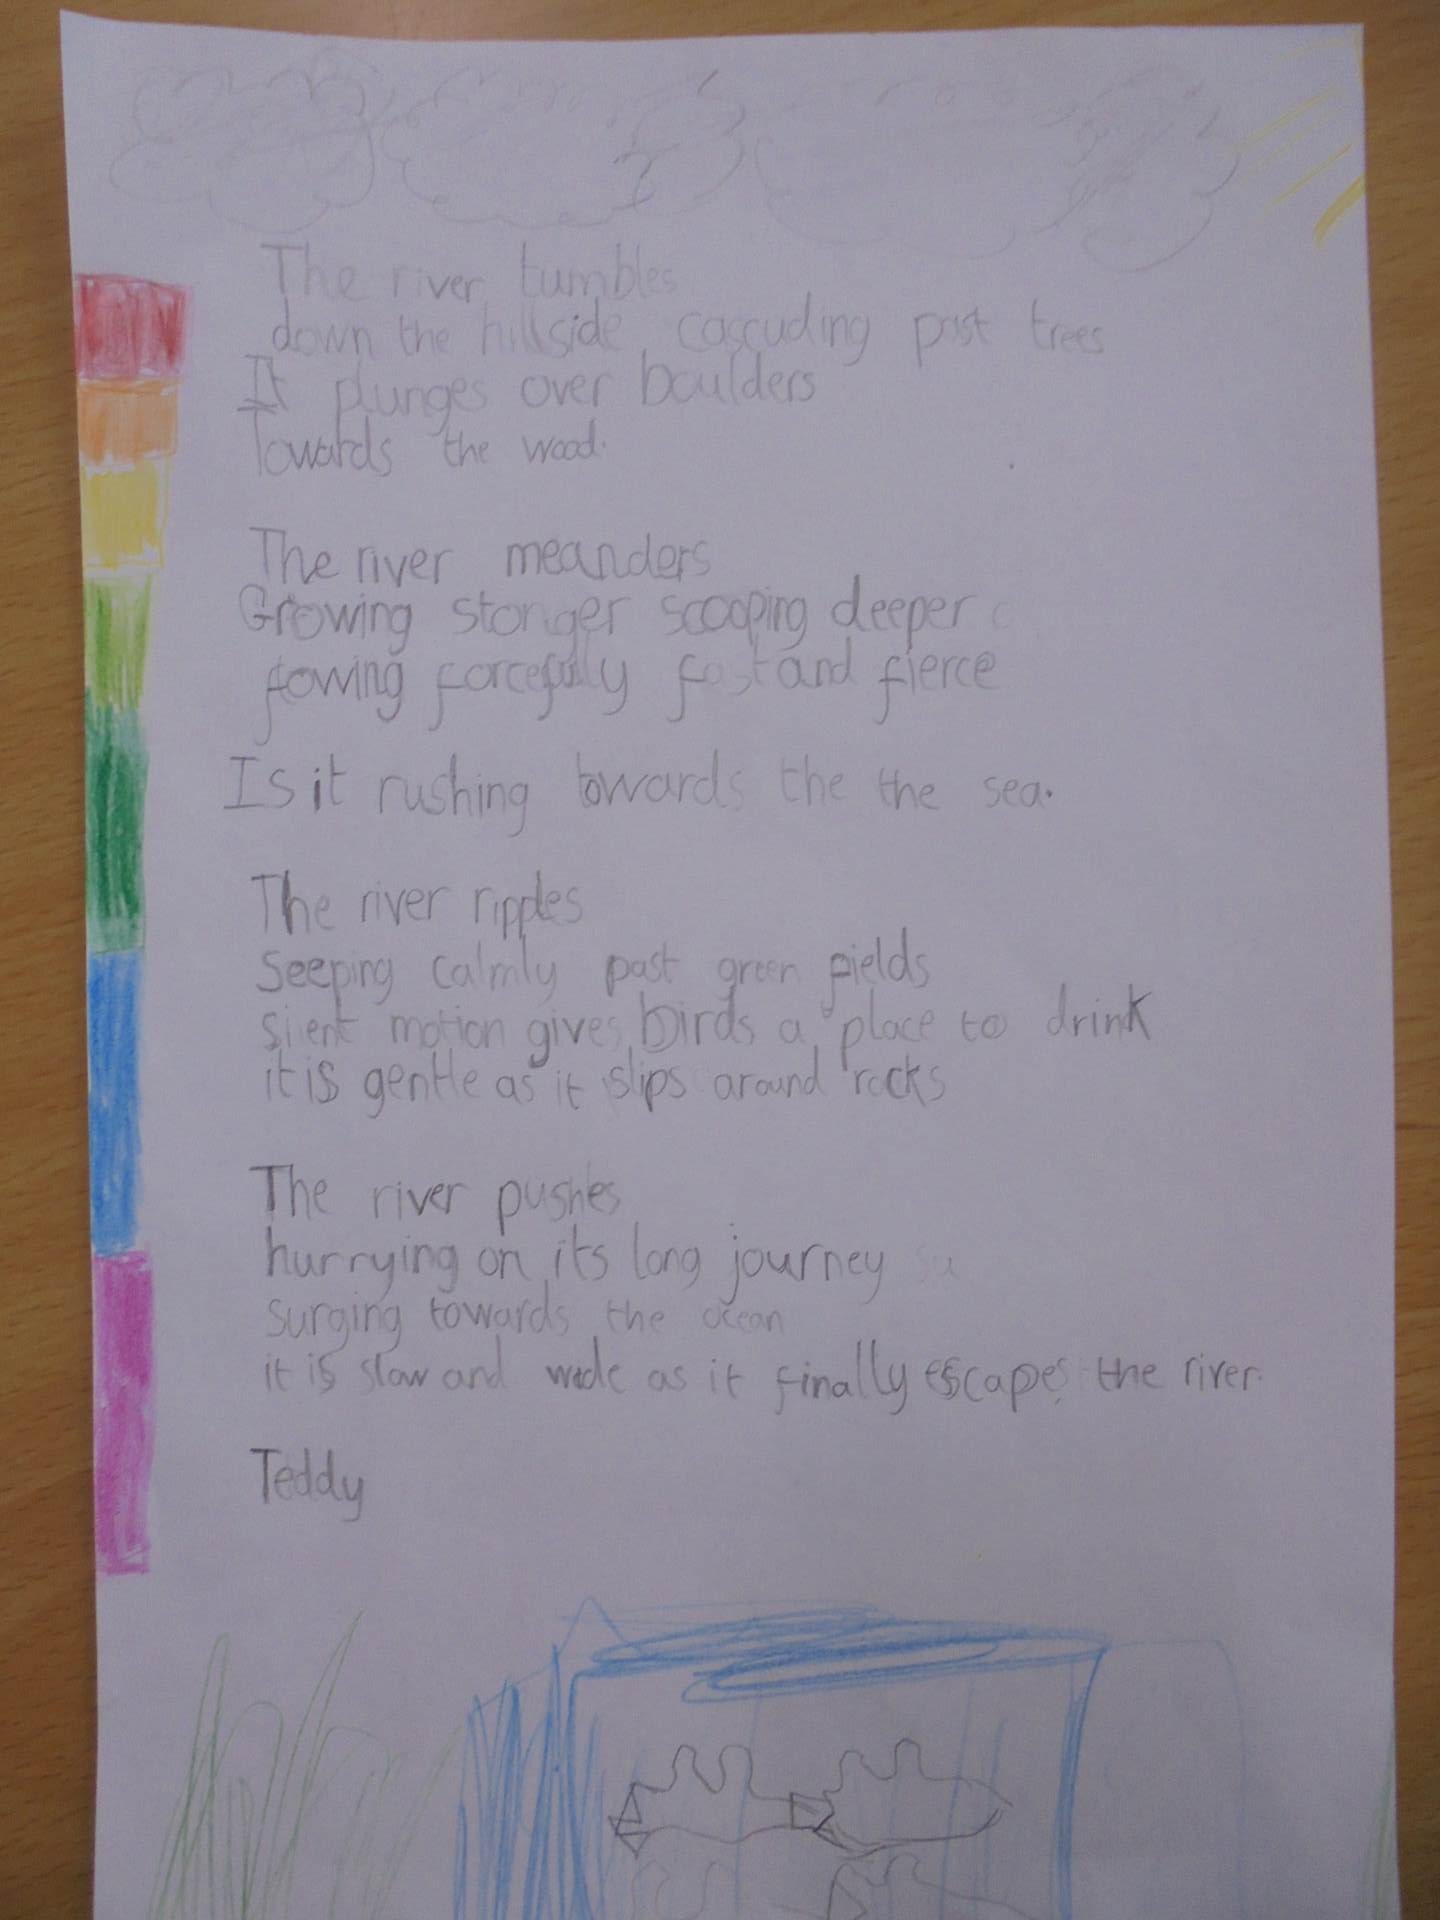 The river tumbles
down the hillside cascuding past trees
It plunges over boulders
Towards the wood.
The river meanders
Growing stonger scooping deeper
flowing forcefully fast and fierce
Is it rushing towards the the sea.
The river ripples
Seeping calmly past green fields
silent motion gives birds a place to drink
it is gentle as it slips around rocks
The river pushes
hurrying on its long journey
surging towards the ocean
it is slow and wide as it finally escapes the river.
Teddy